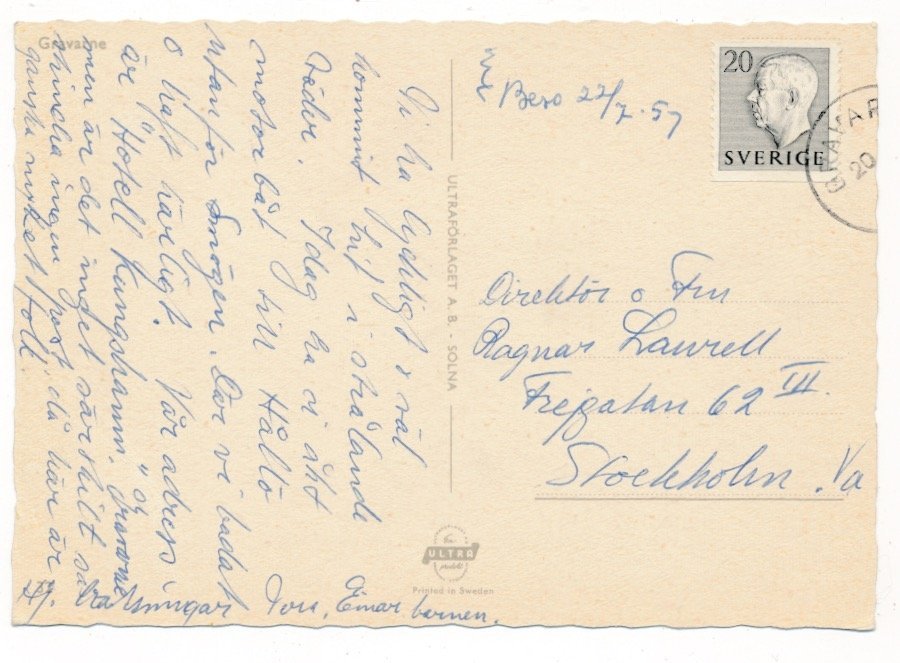 Gravarne
Vi ha lyckligt o väl
kommit hit i strålande
väder. Idag ha vi åkt
motorbåt till Hållö
utanför Smögen. Där vi badat
o haft härligt. Vår adress
är "Hotell Kungshamn" og
men är det inget särskilt så
skicka ingen post, då här är
ganska mycket folk.
Hj. hälsningar Tora, Einar barnen.
ULTRAFÖRLAGET A.B. - SOLNA
ULTRA
Printed in Sweden
Besv 22/7.57
20
SVERIGE
GRAVAR
20
Direktör o Fru
Ragnar Laurell
Frejgatan 62 III.
Stockholm. Va